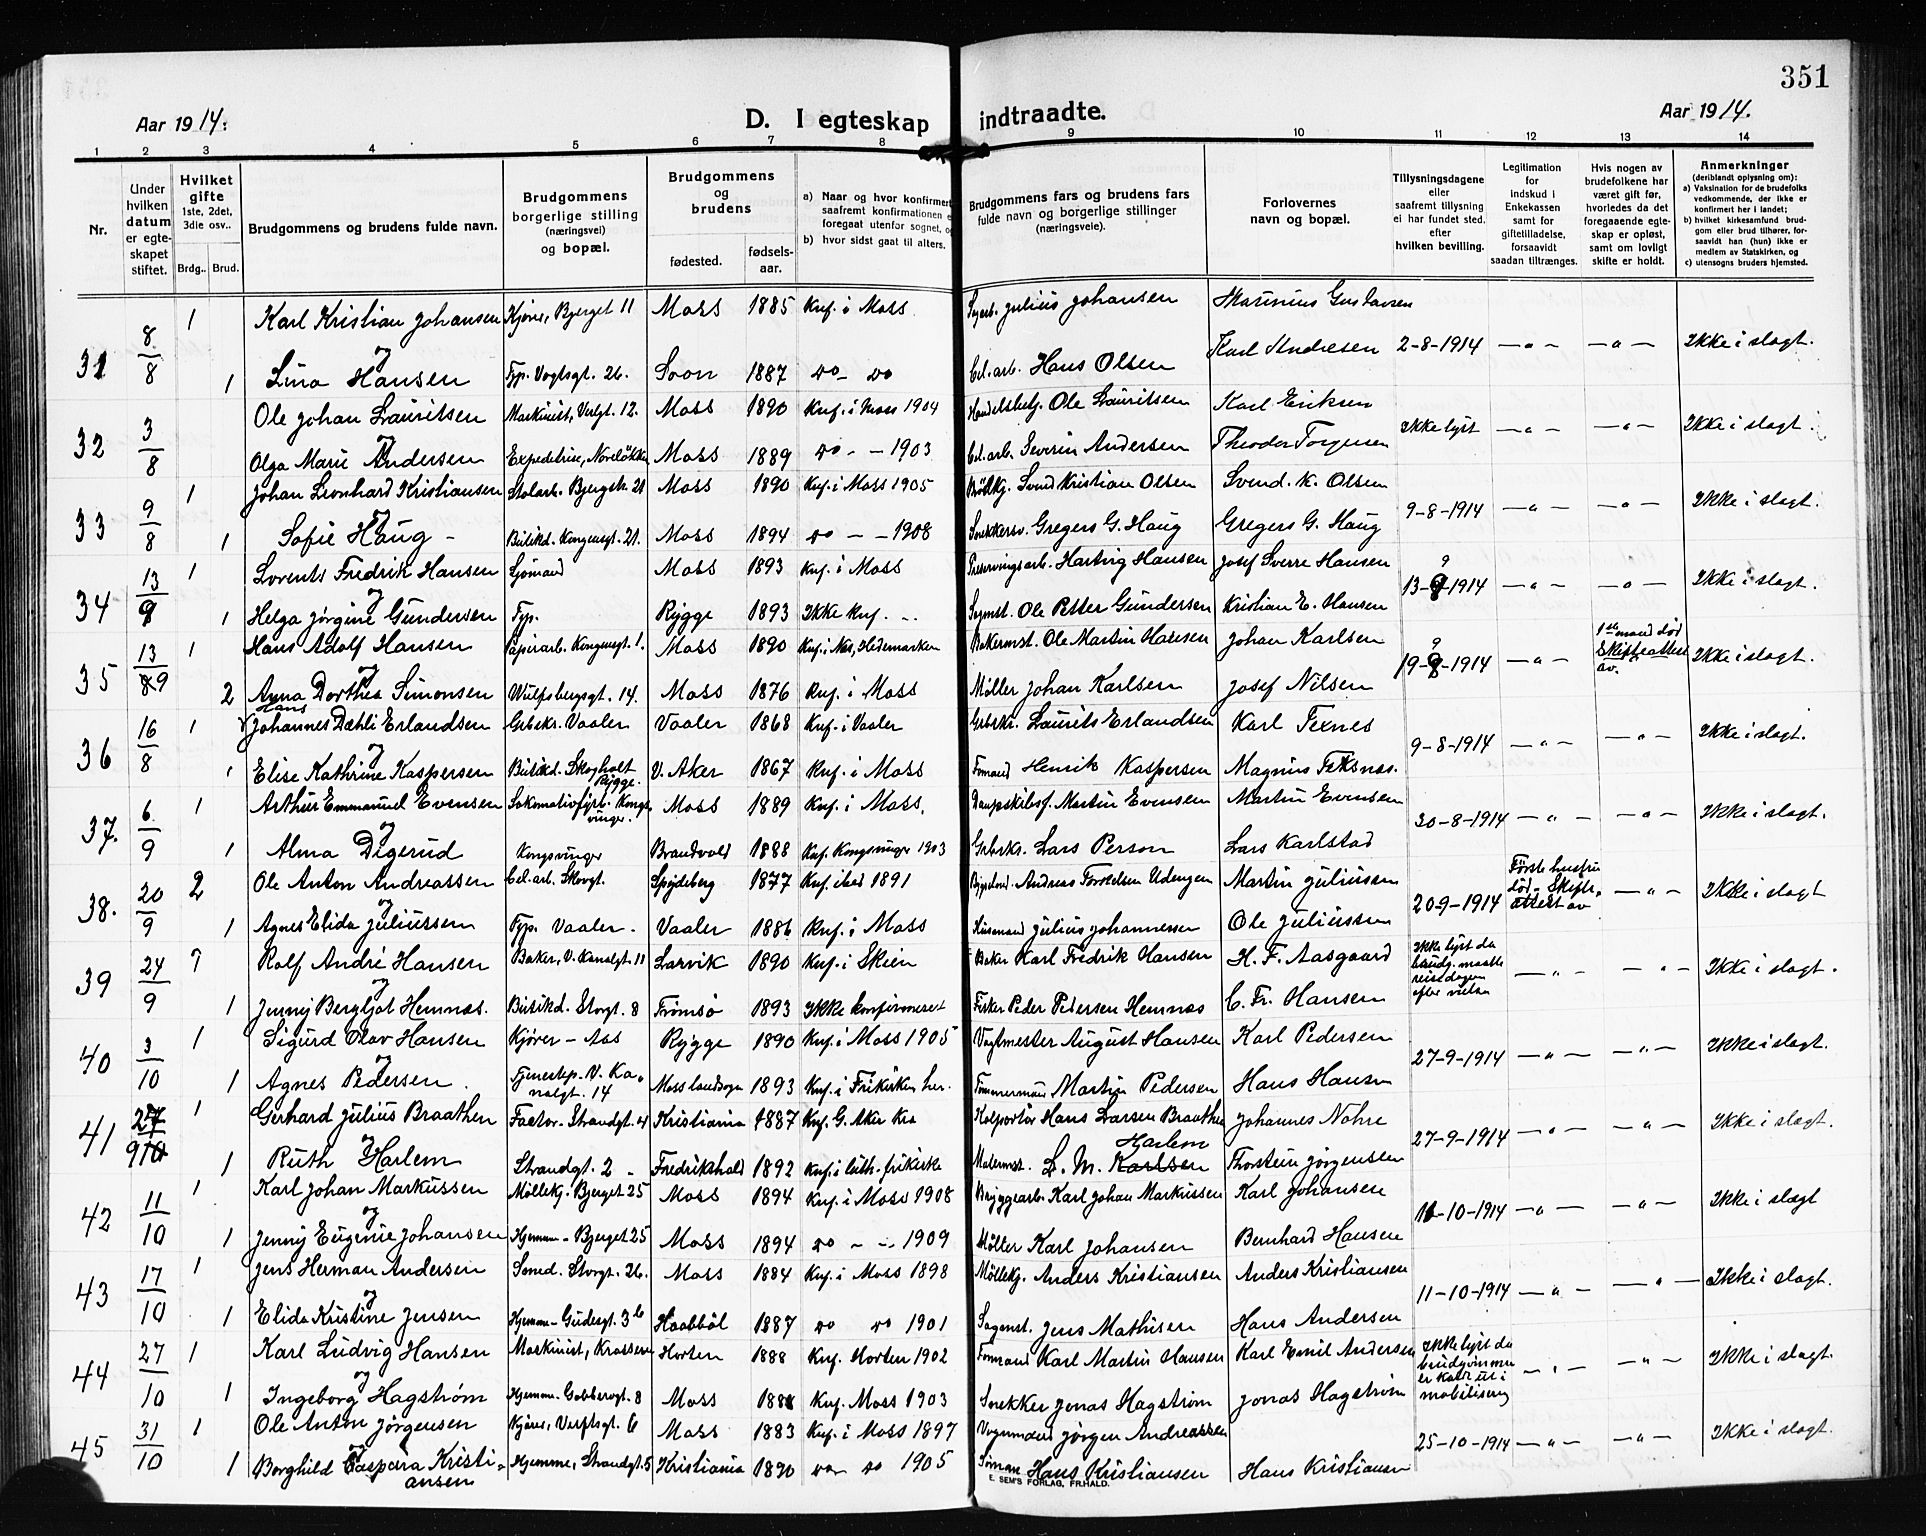 351
Aar 1914.
D. I egteskap indtraadte.
Aar 1914.
1 2 3 4 5 6 7 8 9 10 11 12 13 14
Nr.
Under hvilken datum er egteskapet stiftet.
Hvilket gifte 1ste, 2det, 3die osv..
Brdg.. Brud.
Brudgommens og brudens fulde navn.
Brudgommens borgerlige stilling (næringsvei) og bopæl.
Brudgommens og brudens
fødested.
fødsels-aar.
a) Naar og hvor konfirmert saafremt konfirmationen er foregaat utenfor sognet, og
b) hvor sidst gaat til alters.
Brudgommens fars og brudens fars fulde navn og borgerlige stillinger (næringsveie).
Forlovernes navn og bopæl.
Tillysningsdagene eller saafremt tillysning ei har fundet sted. efter hvilken bevilling.
Legitimation for indskud i Enkekassen samt for giftetilladelse, forsaavidt saadan tiltrænges.
Hvis nogen av brudefolkene har været gift før, hvorledes da det foregaaende egteskap er opløst, samt om lovligt skifte er holdt.
Anmerkninger (deriblandt oplysning om):
a) Vaksination for de brudefolks vedkommende, der ikke er konfirmert her i landet;
b) hvilket kirkesamfund brudgom eller brud tilhører, forsaavidt han (hun) ikke er medlem av Statskirken, og
c) utensogns bruders hjemsted.
31 8/8 1 Karl Kristian Johansen Kjører, Bjerget 11 Moss 1885 Knf. i Moss Julius Johansen Marinius Gustavsen
og Karl Andresen 2-8-1914 —"— —"— Ikke i slægt.
1 Lina Hansen Fyp. Vogtsgt. 26. Soon 1887 do — do Cel. arb. Hans Olsen
32 3/8 Ole Johan Lauritsen Maskinist, Verlgt. 12. Moss 1890 Knf. i Moss 1904 Handelsbetj. Ole Lauritsen Karl Eriksen
og Ikke lyst —"— —"— Ikke i slægt.
Olga Marie Andersen Expeditrise, Noreløkken Moss 1889 do — — 1903 Cel. arb. Severin Andersen Theodor Torgersen
33 9/8 1 Johan Leonhard Kristiansen Stolarb. Bjergst. 21 Moss 1890 Knf. i Moss 1905 Svend Kristian Olsen Svend. K. Olsen
og 9-8-1914 —"— —"— Ikke i slægt.
1 Sofie Haug — Butikd. Kongensgt. 21. Moss 1894 do — — 1908 Gregers G. Haug Gregers G. Haug
34 13/9 1 Lorents Fredrik Hansen Sjømand Moss 1893 Knf. i Moss Preservingsarb. Hartvig Hansen Josef Sverre Hansen
og 13-9-1914 —"— —"— Ikke i slægt.
1 Helga Jørgine Gundersen Fyp. Rygge 1893 Ikke knf. Ole Petter Gundersen Kristian E. Hansen
35 13/9 1 Hans Adolf Hansen Papirarb. Kongensgt. 1. Moss 1890 Knf. i Nes, Hedemarken Bakermst. Ole Martin Hansen Johan Karlsen
og 19-9-1914 —"— 1ste mand død Skifteattest av. Ikke i slægt.
2 Anna Dorthea Simonsen Wulfsbergsgt. 14. Moss 1876 Knf. i Moss Møller Johan Karlsen Josef Nilsen
36 16/8 1 Hans Johannes Dæhli Erlandsen Grbrkr. Vaaler Vaaler 1868 Knf. i Vaaler Grbrkr. Laurits Erlandsen Karl Texnes
og 9-8-1914 —"— —"— Ikke i slægt.
1 Elise Kathrine Kaspersen Butikd. Skogholt Rygge. V. Aker 1867 Knf. i Moss Formand Henrik Kaspersen Magnus Feksnæs.
37. 6/9 1 Arthur Emmanuel Evensen Lokomotivfyrb. Kongsvinger. Moss 1889 Knf. i Moss. Martin Evensen Martin Evensen
og 30-8-1914 —"— —"— Ikke i slægt.
1 Alma Digerud Kongsvinger Brandvold 1888 Knf. Kongsvinger 1903 Grbrkr. Lars Person Lars Karlstad
38. 20/9 2 Ole Anton Andreassen Cel. arb. Skovgt. Spydeberg 1877 Knf. ibid 1891 Andreas Torkelsen Udengen Martin Juliussen
og 20-9-1914 Første hustru død. Skifteattest av —"— Ikke i slægt
1 Agnes Elida Juliussen Fyp. Vaaler. Vaaler 1886 Knf. i Moss Husmand Julius Johannessen Ole Juliussen
39 24/9 1 Rolf André Hansen Baker, V. Kanalgt. 11 Larvik 1890 Knf. i Skien Baker Karl Fredrik Hansen H. F. Aasgaard
og Ikke lyst da brudg. maatte reise dagen efter vielsen —"— —"— Ikke i slægt.
1 Jenny Bergljot Hemnæs. Butikd. Storgt. 8 Tromsø 1893 Ikke konfirmeret Fisker Peder Pedersen Hemnæs C. Fr. Hansen
40 3/10 1 Sigurd Olav Hansen Kjører — Aas Rygge 1890 Knf. i Moss 1905 Vagtmester August Hansen Karl Pedersen
og 27-9-1914 —"— —"— Ikke i slægt.
1 Agnes Pedersen. Tjenestep. V. Kanalgt. 14 Moss landsogn 1893 Knf. i Frikirken her. Tømmermand Martin Pedersen Hans Hansen
41 27/9 1 Gerhard Julius Braathen Factor. Strandgt. 4 Kristiania 1887 Knf. G. Aker Kra Kolportør Hans Larsen Braathen Johannes Nohre
og 27-9-1914 —"— —"— Ikke i slægt.
1 Ruth Harlem Strandgt. 2 — Fredrikshald 1892 Knf. i luth. frikirke Malermst. L. M. Karlsen Harlem Thorstein Jørgensen
42 11/10 1 Karl Johan Markussen Møllekj. Bjerget 25 Moss 1894 Knf. i Moss 1908 Bryggearb. Karl Johan Markussen Karl Johansen
og 11-10-1914 —"— —"— Ikke i slægt
1 Jenny Eugenie Johansen Hjemme — Bjerget 25 Moss 1894 do — — 1909 Møller Karl Johansen Bernhard Hansen
43 17/10 1 Jens Herman Andersen Smed. Storgt. 26. Moss 1884 Knf. i Moss 1898 Møllekj. Anders Kristiansen Anders Kristiansen
og 11-10-1914 —"— —"— Ikke i slægt.
1 Elida Kristine Jensen Hjemme — Gudesgt. 3b Haabbøl 1887 do do 1901 Jens Mathisen Hans Andersen
44 27/10 1 Karl Ludvig Hansen Maskinist, Krasseren Horten 1888 Knf. Horten 1902 Formand Karl Martin Hansen Karl Emil Andersen
og Ikke lyst da brudgommen er kaldt ut i mobilisering —"— —"— Ikke i slægt.
1 Ingeborg Hagstrøm Hjemme — Gobbersgt. 8 Moss 1888 Knf. Moss 1903 Snekker Jonas Hagstrøm Jonas Hagstrøm
45 31/10 1 Ole Anton Jørgensen Kjører, Verftsgt. 6 Moss 1883 Knf. i Moss 1897 Vognmand Jørgen Andreassen
og 25-10-1914 —"— —"— Ikke i slægt.
1 Borghild Caspara Kristiansen Hjemme, Strandgt. 5 Kristiania 1890 do — do 1905 Sømand Hans Kristiansen Hans Kristiansen
E. SEM'S FORLAG, FR.HALD.